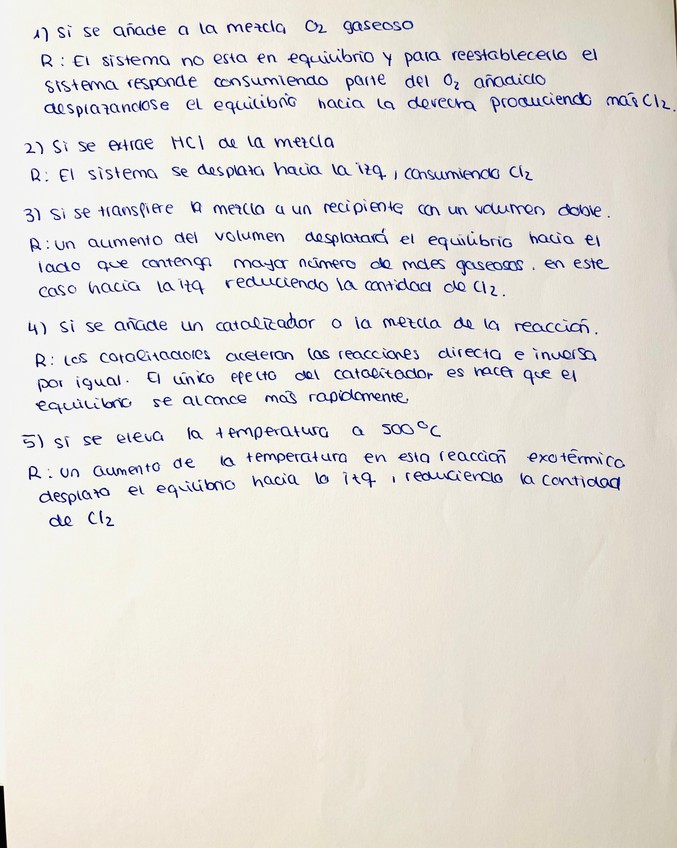 1) Si se añade a la mezcla O2 gaseoso
R: El sistema no esta en equilibrio y para reestablecerlo el
sistema responde consumiendo parte del O2 añadido
desplazandose el equilibrio hacia la derecha produciendo más Cl2.
2) Si se extrae HCl de la mezcla
R: El sistema se desplaza hacia la izq, consumiendo Cl2
3) Si se transfiere la mezcla a un recipiente con un volumen doble.
R: un aumento del volumen desplazará el equilibrio hacia el
lado que contenga mayor número de moles gaseosos. en este
caso hacia la izq reduciendo la cantidad de Cl2.
4) Si se añade un catalizador a la mezcla de la reacción.
R: Los catalizadores aceleran las reacciones directa e inversa
por igual. El único efecto del catalizador es hacer que el
equilibrio se alcance más rapidamente
5) si se eleva la temperatura a 500°C
R: un aumento de la temperatura en esta reacción exotérmica
desplaza el equilibrio hacia la izq, reduciendo la cantidad
de Cl2